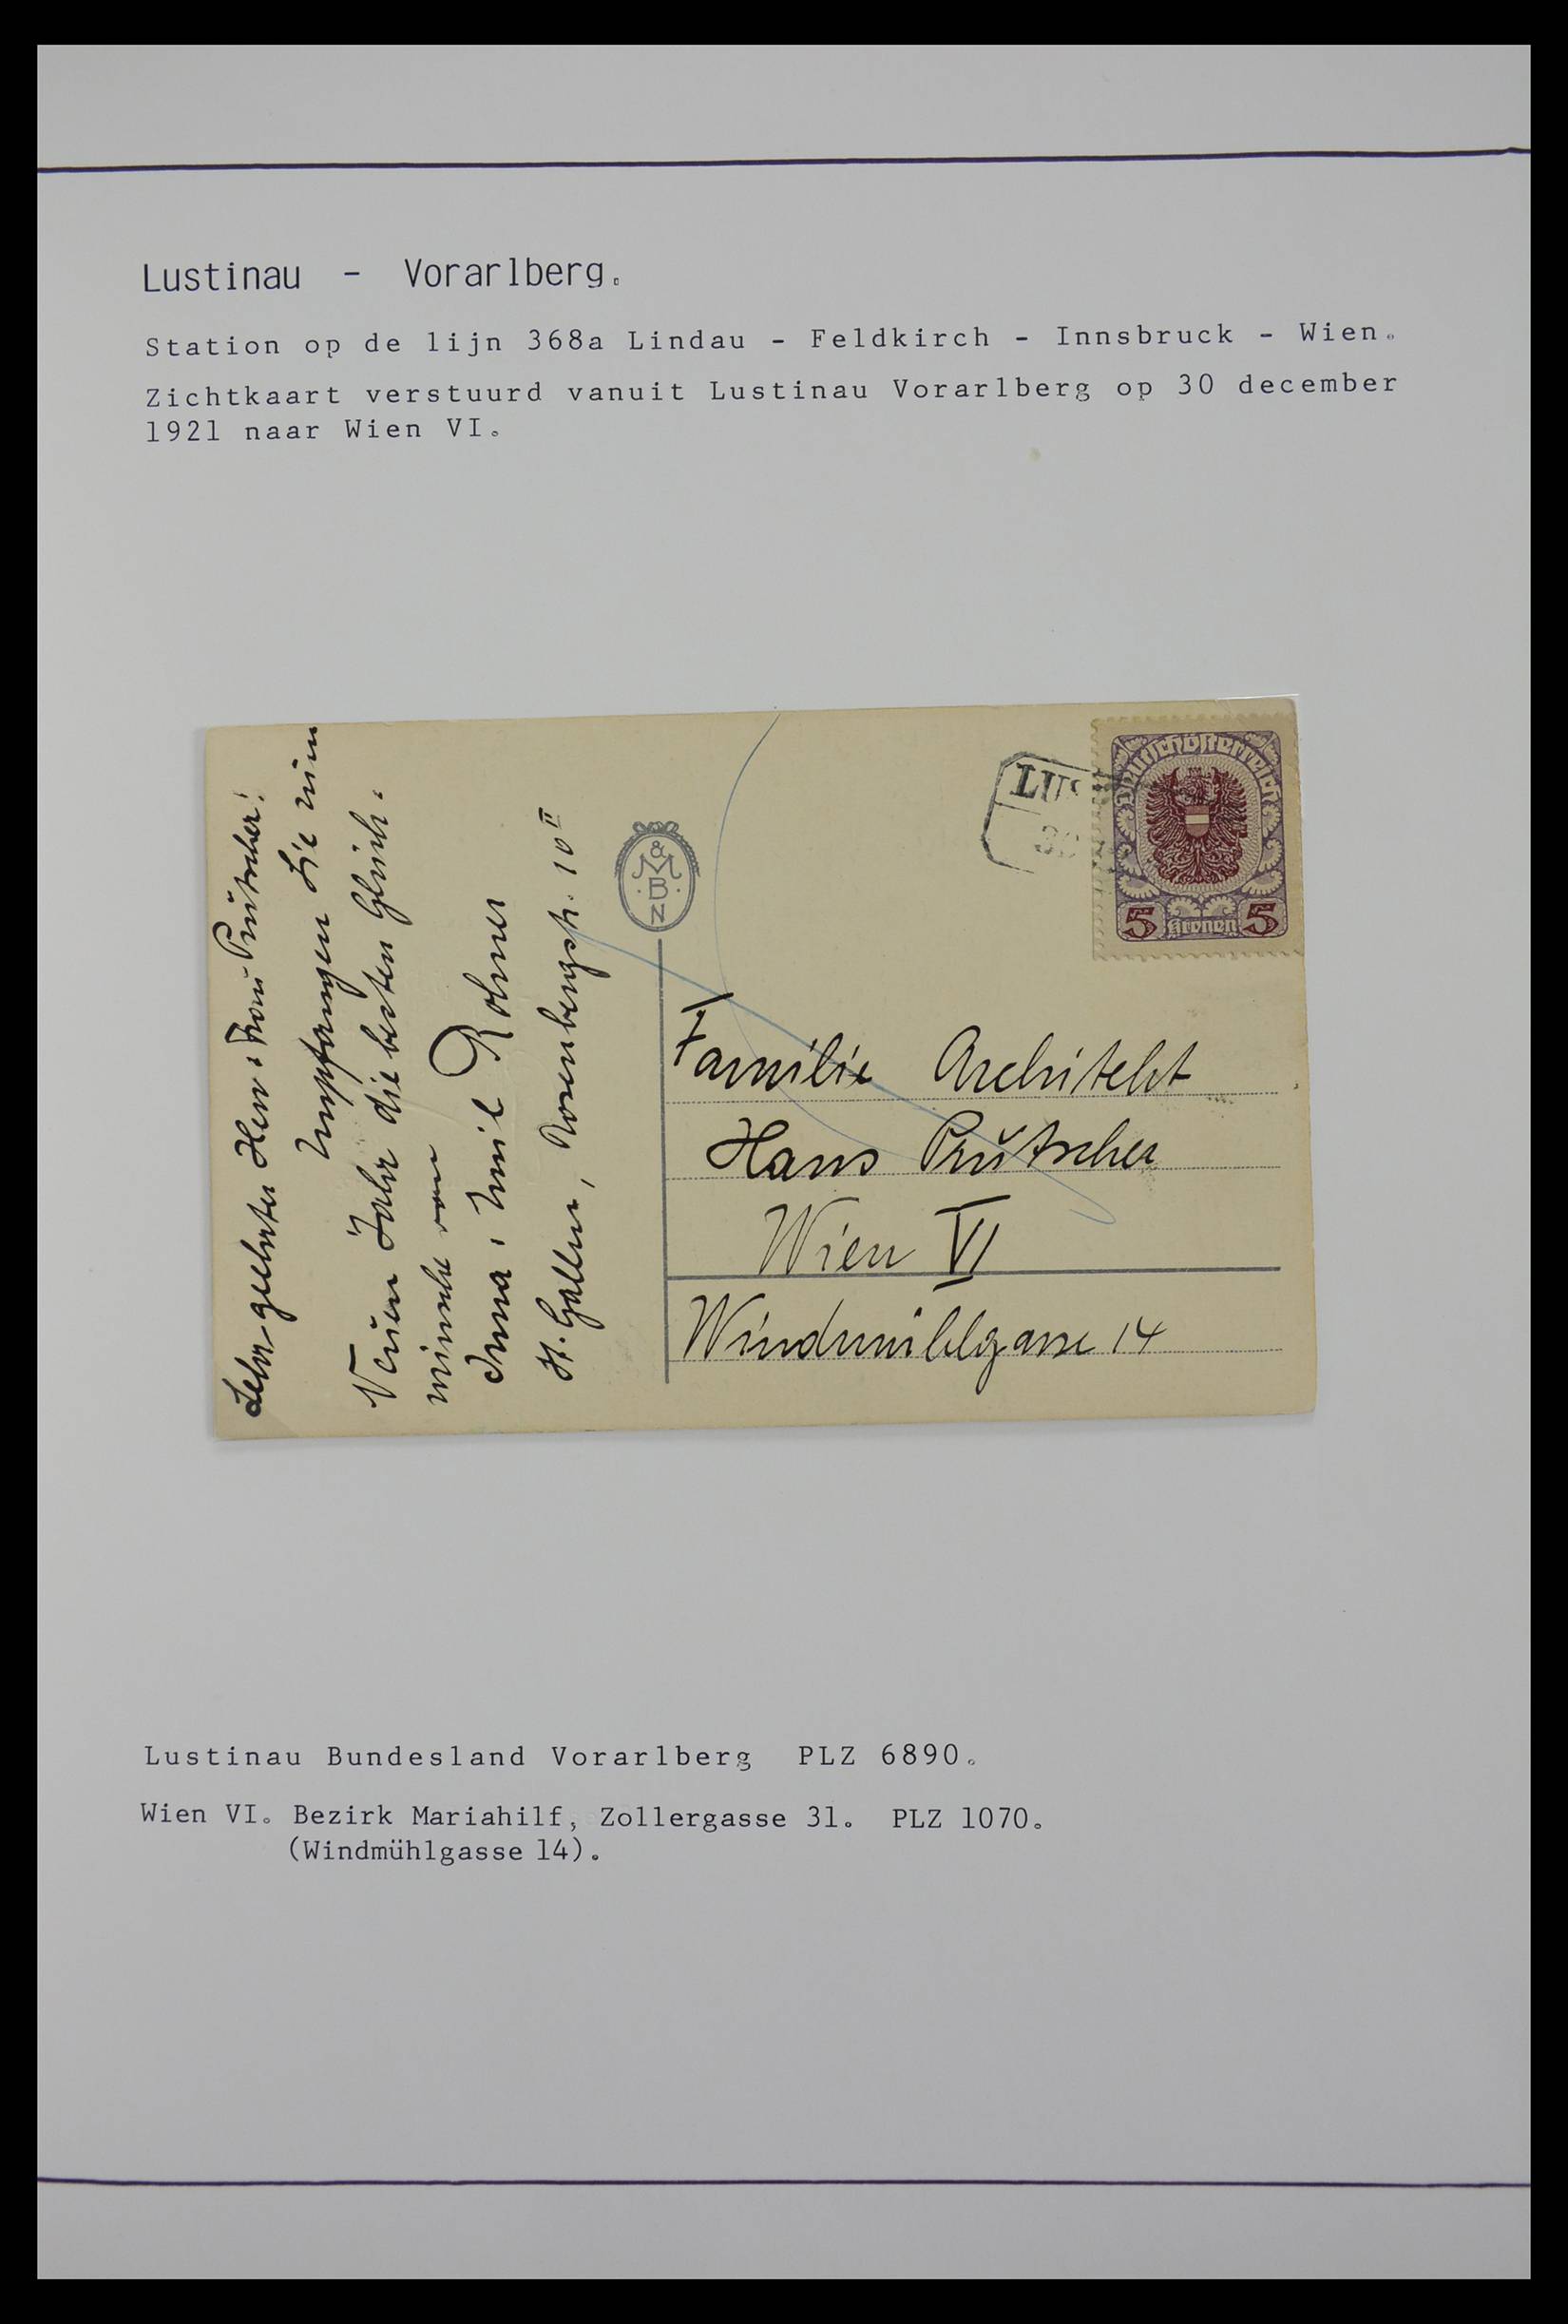 Lustinau - Vorarlberg.
Station op de lijn 368a Lindau - Feldkirch - Innsbruck - Wien.
Zichtkaart verstuurd vanuit Lustinau Vorarlberg op 30 december
1921 naar Wien VI.
Sehr geehrter Herr u. Frau Prutscher!
Empfangen Sie zum
Neuen Jahr die besten Glück-
wünsche von
Emil Rohner
St. Gallen, Rosenbergstr. 10 II
& M B N
LUS
30
Deutschösterreich
5 Kronen 5
Familie Architekt
Hans Prutscher
Wien VI
Windmühlgasse 14
Lustinau Bundesland Vorarlberg PLZ 6890.
Wien VI. Bezirk Mariahilf, Zollergasse 31. PLZ 1070.
(Windmühlgasse 14).